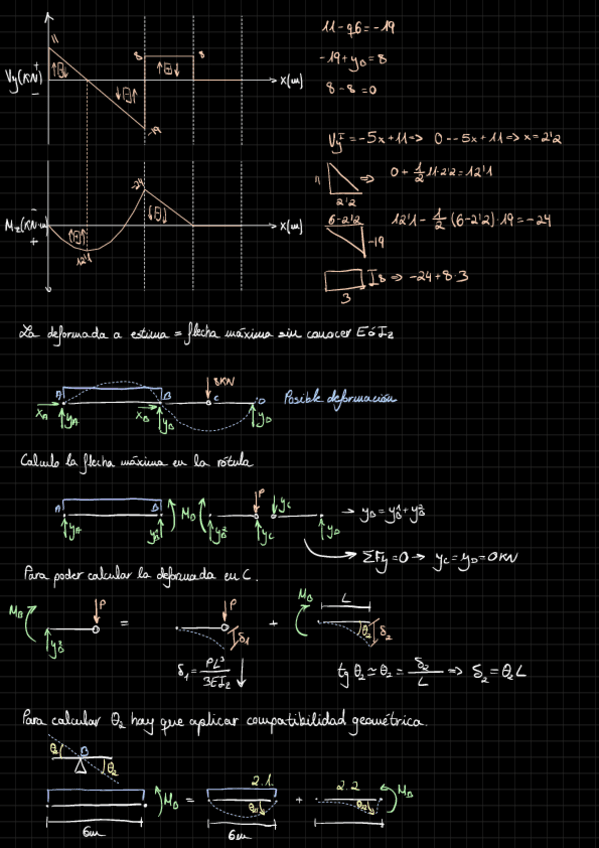 11-q6=-19
-19+yD=8
8-8=0
11
8
8
Vy(KN)
+
-
x(m)
-19
VyI=-5x+11=> 0--5x+11=>x=2'2
11
2'2
=> 0+1/2 11·2'2=12'1
-24
Mz(KN·m)
-
+
x(m)
12'1
6-2'2
-19
12'1-1/2(6-2'2)·19=-24
8 => -24+8·3
3
La deformada a estima = flecha máxima sin conocer E ó Iz
8KN
A
B
C
D
xA
yA
xB
yB
yD
Posible deformación
Calculo la flecha máxima en la rótula
A
B
MB
P
yC
yA
yB1
yB2
yC
yD
→ yB=yB1+yB2
ΣFy=0→ yC=yD=0KN
Para poder calcular la deformada en C.
MB
P
yB2
=
P
δ1
+
MB
L
θ2
δ2
δ1=PL3/3EIz
tg θ2≃θ2=δ2/L => δ2=θ2L
Para calcular θ2 hay que aplicar compatibilidad geométrica.
θ2
B
θ2
MB
=
2.1.
+
2.2
MB
6m
6m